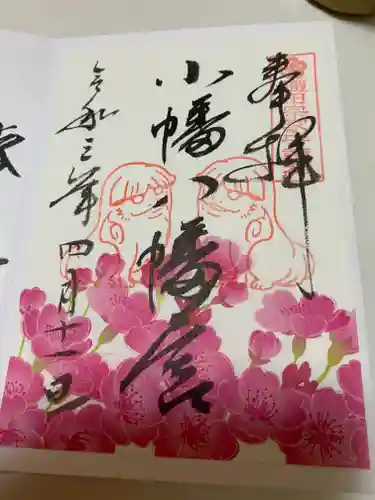 奉拝
小幡八幡宮
令和三年四月十一日